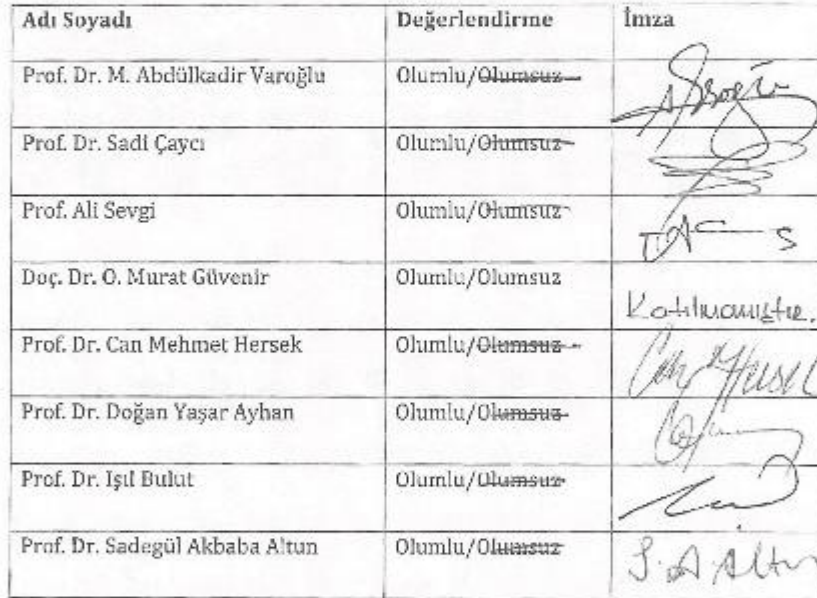 Adı Soyadı Değerlendirme İmza
Prof. Dr. M. Abdülkadir Varoğlu Olumlu/Olumsuz
Prof. Dr. Sadi Çaycı Olumlu/Olumsuz
Prof. Ali Sevgi Olumlu/Olumsuz
Doç. Dr. O. Murat Güvenir Olumlu/Olumsuz Katılmamıştır.
Prof. Dr. Can Mehmet Hersek Olumlu/Olumsuz
Prof. Dr. Doğan Yaşar Ayhan Olumlu/Olumsuz
Prof. Dr. Işıl Bulut Olumlu/Olumsuz
Prof. Dr. Sadegül Akbaba Altun Olumlu/Olumsuz S. A. Altun